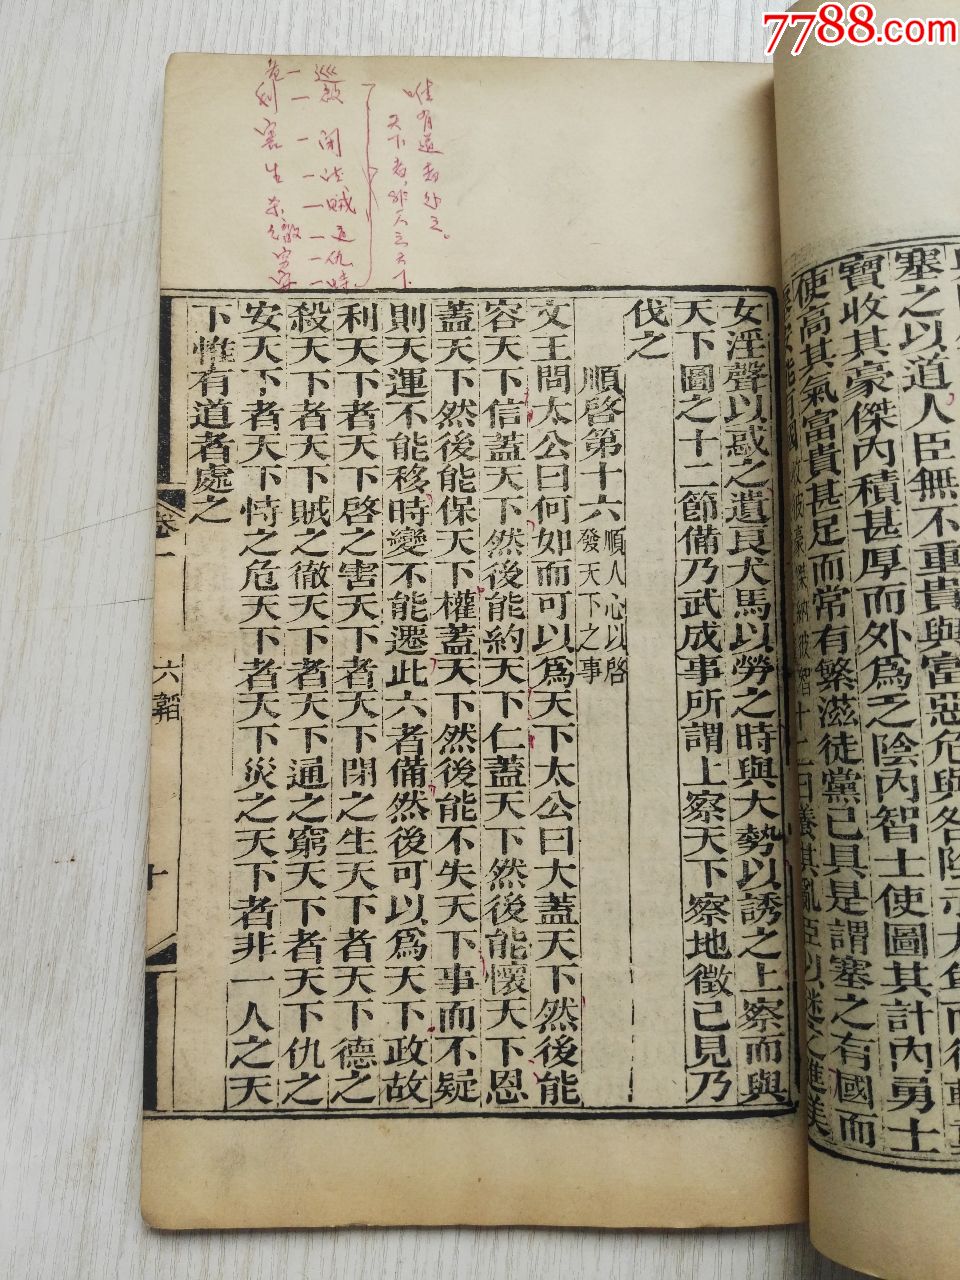 7788.com
塞之以道人臣無不重貴與富惡危與咎陰示大
寶收其豪傑內積甚厚而外爲乏陰內智士使圖其計內勇士
使高其氣富貴甚足而常有繁滋徒黨已具是謂塞之有國而
十二曰養其亂臣以迷之進美
女淫聲以惑之遺良犬馬以勞之時與大勢以誘之上察而與
天下圖之十二節備乃武成事所謂上察天下察地徵已見乃
伐之
順啓第十六 順人心以啓發天下之事
文王問太公曰何如而可以爲天下太公曰大蓋天下然後能
容天下信蓋天下然後能約天下仁蓋天下然後能懷天下恩
蓋天下然後能保天下權蓋天下然後能不失天下事而不疑
則天運不能移時變不能遷此六者備然後可以爲天下政故
利天下者天下啓之害天下者天下閉之生天下者天下德之
殺天下者天下賊之徹天下者天下通之窮天下者天下仇之
安天下者天下恃之危天下者天下災之天下者非一人之天
下惟有道者處之
卷一 六韜 十
唯有道者處之。
天下者,非一人之天下